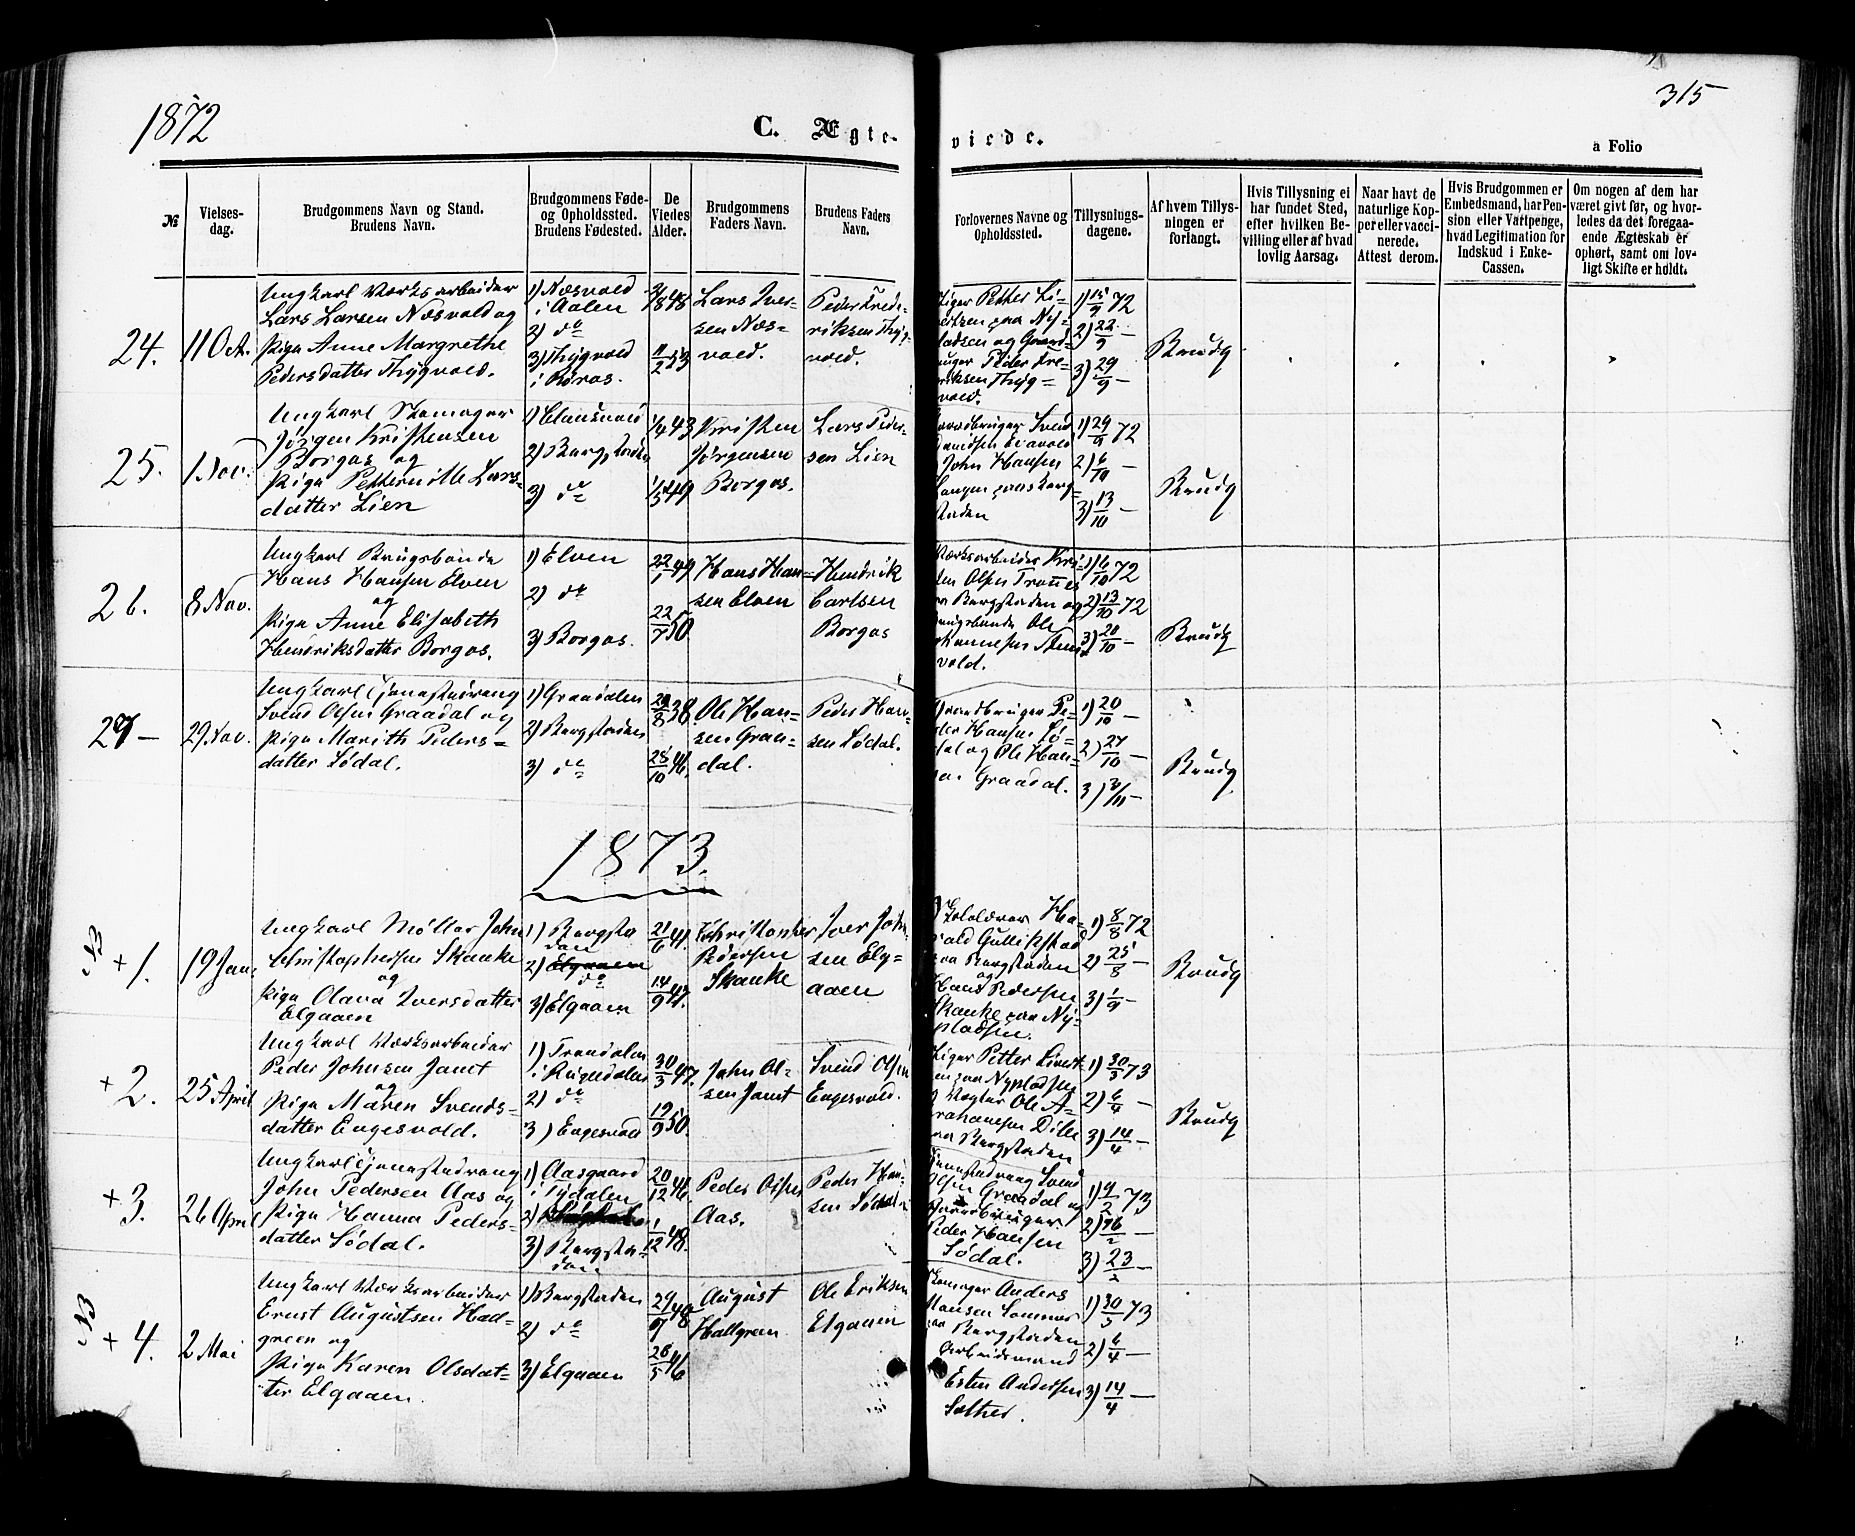 1872
C. Ægte-
viede.
315
a Folio
№
Vielses-
dag.
Brudgommens Navn og Stand.
Brudens Navn.
Brudgommens Føde-
og Opholdssted.
Brudens Fødested.
De
Viedes
Alder.
Brudgommens
Faders Navn.
Brudens Faders
Navn.
Forlovernes Navne og
Opholdssted.
Tillysnings-
dagene.
Af hvem Tillys-
ningen er
forlangt.
Hvis Tillysning ei
har fundet Sted,
efter hvilken Be-
villing eller af hvad
lovlig Aarsag.
Naar havt de
naturlige Kop-
per eller vacci-
nerede.
Attest derom.
Hvis Brudgommen er
Embedsmand, har Pen-
sion eller Vartpenge,
hvad Legitimation for
Indskud i Enke-
Cassen.
Om nogen af dem har
været givt før, og hvor-
ledes da det foregaa-
ende Ægteskab er
ophørt, samt om lov-
ligt Skifte er holdt.
24.
11 Oct.
Ungkarl Værksarbeider
Lars Larsen Næsvold og
Pige Anne Margrethe
Pedersdatter Thygvold.
1) Næsvold
i Aalen
2) do
3) Thygvold
i Røros.
48
11/2 53
Lars Iver-
sen Næs-
vold.
Peder Frede-
riksen Thyg-
vold.
Petter Li-
paa Ny-
pladsen og Gaard-
bruger Peder Fre-
riksen Thyg-
vold.
1) 15/9 72
2) 22/9 —
3) 29/9 —
Brudg
25.
1 Nov.
Ungkarl Skomager
Jörgen Kristensen
Borgos og
Pige Petternille Lars-
datter Lien
1)
2) Bergstaden
3) do
1/4 43
1/5 49
Kristen
Jörgensen
Borgos.
Lars Peder-
sen Lien
Gaardbruger Svend
John Hansen
paa Berg-
staden
1) 29/9 72
2) 6/10 —
3) 13/10 —
Brudg
26.
8 Nov.
Ungkarl Brugsbonde
Hans Hansen Elven
og
Pige Anne Elisabeth
Hendriksdatter Borgos.
1) Elven
2) do
3) Borgos.
22/1 49
22/7 50
Hans Han-
sen Elven
Hendrik
Carlsen
Borgos
Værksarbeider Kri-
sten Olsen Trones
paa Bergstaden og
Brugsbonde Ole
vold.
1) 6/10 72
2) 13/10 72
3) 20/10 —
Brudg
27 —
29. Nov.
Ungkarl Tjenestedreng
Svend Olsen Graadal og
Pige Marith Peders-
datter Södal.
1) Graadalen
2) Bergstaden
3) do
29/8 38
28/10 46.
Ole Han-
sen Graa-
dal.
Peder Han-
sen Södal.
Gaardbruger Pe-
der Hansen Sö-
dal og Ole Han-
sen Graadal.
1) 20/10 —
2) 27/10 —
3) 3/11 —
Brudg
1873.
NB
+ 1.
19 Jan.
Ungkarl Möller John
Christophersen Skanke
og
Pige Olava Iversdatter
Elgaaen
1) Bergsta-
den
2) Elgaaen
do
3) Elgaaen
21/6 41
14/9 47.
Christopher
Pedersen
Skanke
Iver John-
sen Elg-
aaen
Skolelærer Ha-
rald Gullikstad
paa Bergstaden
og
Hans Pedersen
Skanke paa Ny-
pladsen.
1) 8/8 72
2) 25/8 —
3) 1/9 —
Brudg
+ 2.
25 April
Ungkarl Værksarbeider
Peder Johnsen Jamt
og
Pige Maren Svends-
datter Engesvold.
1) Traadalen
i Rugeldalen
2) do
3) Engesvold
30/3 47.
19/9 50.
John Ol-
sen Jamt
Svend Olsen
Engesvold.
Petter Livert-
sen paa Nypladsen
og Vægter Ole A-
brahamsen Dille
paa Bergstaden
1) 30/3 73
2) 6/4 —
3) 14/4 —
Brudg
+ 3.
26 April
Ungkarl Tjenestedreng
John Pedersen Aas og
Pige Hanna Peders-
datter Södal.
1) Aasgaard
i Tydalen
2)
3) Bergsta-
den
20/12 46.
1/12 48.
Peder Olsen
Aas.
Peder Han-
sen Södal
Tjenestedreng Svend
Olsen Graadal og
Gaardbruger
Peder Hansen
Södal.
1) 9/2 73
2) 16/2 —
3) 23/2 —
NB
+ 4.
2 Mai
Ungkarl Værksarbeider
Ernst Augustsen Hall-
green og
Pige Karen Olsdat-
ter Elgaaen.
1) Bergstaden
2) do
3) Elgaaen
29/9 48
26/5 46
August
Hallgreen
Ole Eriksen
Elgaaen
Skomager Anders
Hansen Sommer
paa Bergstaden
Arbeidsmand
Esten Andersen
Sæther.
1) 30/3 73
2) 6/4 —
3) 14/4 —